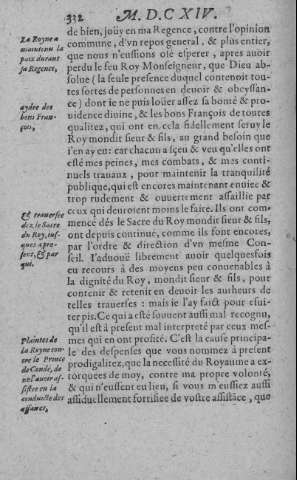 312 M. D C XIV.
de bien, joüy en ma Regence, contre l'opinion
commune, d'vn repos general, & plus entier,
que nous n'eussions osé esperer, apres auoir
perdu le feu Roy Monseigneur, que Dieu abso-
olue (la seule presence duquel contenoit toutes
sortes de personnes en deuoir & obeyssan-
ce) dont ie ne puis loüer assez sa bonté & pro-
uidence diuine, & les bons François de toutes
qualitez, qui ont en cela fidellement seruy le
Roy mondit sieur & fils, au grand besoin que
i'en ay eu: car chacun a sçeu & veu qu'elles ont
esté mes peines, mes combats, & mes conti-
nuels trauaux, pour maintenir la tranquilité
publique, qui est encores maintenant enuiee &
trop rudement & ouuertement assaillie par
ceux qui deuroient moins le faire. Ils ont com-
mencé dés le Sacre du Roy mondit sieur & fils,
ont depuis continué, comme ils font encores,
par l'ordre & direction d'vn mesme Con-
seil. I'aduoüe librement auoir quelquesfois
eu recours à des moyens peu conuenables à
la dignité du Roy, mondit sieur & fils, pour
contenir & retenir en deuoir les autheurs de
telles trauerses: mais ie l'ay faict pour esui-
ter pis. Ce qui a esté souuent aussi mal recognu,
qu'il est à present mal interpreté par ceux mes-
mes qui en ont profité. C'est la cause principa-
le des despenses que vous nommez à present
prodigalitez, que la necessité du Royaume a ex-
torquees de moy, contre ma propre volonté,
& qui n'eussent eu lieu, si vous m'eussiez aussi
assiduellement fortifiee de vostre assistãce, que
La Royne a
maintenu la
paix durant
sa Regence,
aydee des
bons Fran-
çois,
Et trauersee
dez le Sacre
du Roy, ius-
ques apre-
sent, & par
qui.
Plaintes de
la Royne con-
tre le Prince
de Condé, de
ne l'auoir as-
sistee en la
conduitte des
affaires,